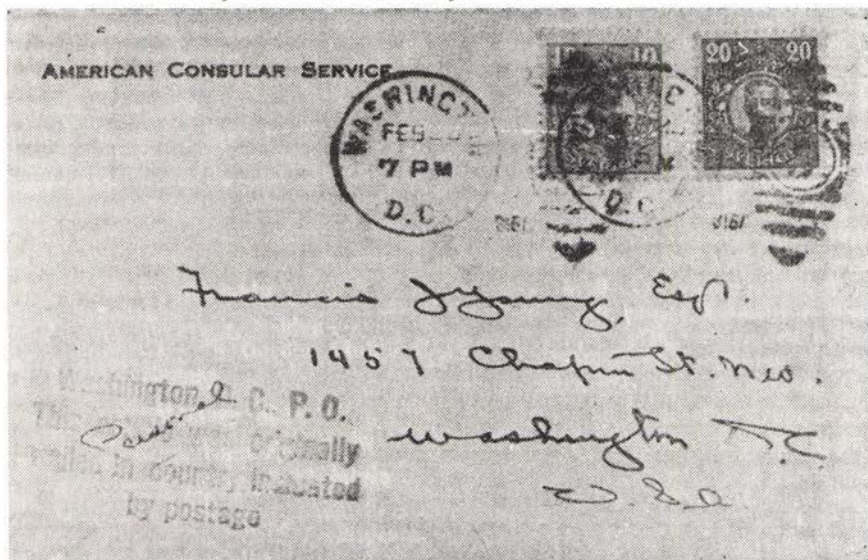 AMERICAN CONSULAR SERVICE
WASHINGT
FEB
7 PM
D.C.
10 10
20 20
D.C.
Francis J Young, Esq.
1457 Chapin St. N.W.
Washington D.C.
U.S.A.
Personal
Washington D. C., P. O.
This originally
mailed in country indicated
by postage